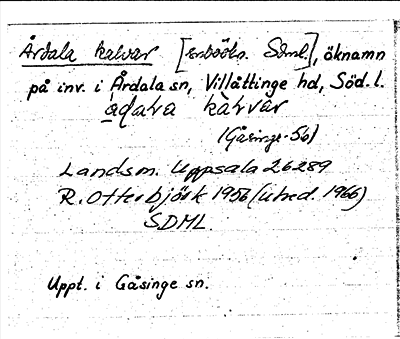 Årdala kalvar [inbööln. Sdml.], öknamn
på inv. i Årdala sn, Villåttinge hd, Söd.l.
kalvar
(Gåsinge-56)
Landsm. Uppsala 26289
R. Otterbjörk 1956 (utred. 1966)
SDML.
Uppt. i Gåsinge sn.